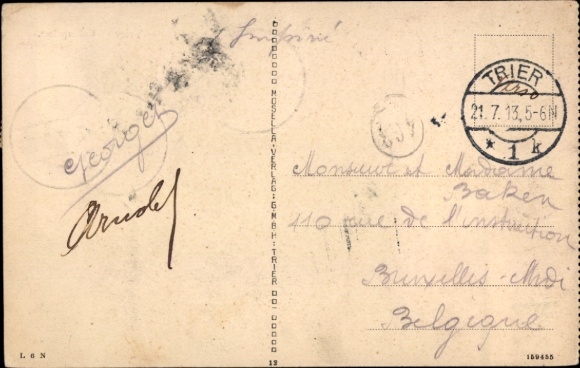 Imprimé
Georges
Arnold
MOSELLA-VERLAG G.M.B.H. TRIER
TRIER
21. 7. 13, 5-6N
* 1 k
Monsieur et Madame
Baken
110 rue de l'instruction
Bruxelles-Midi
Belgique
L 6 N
13
159455